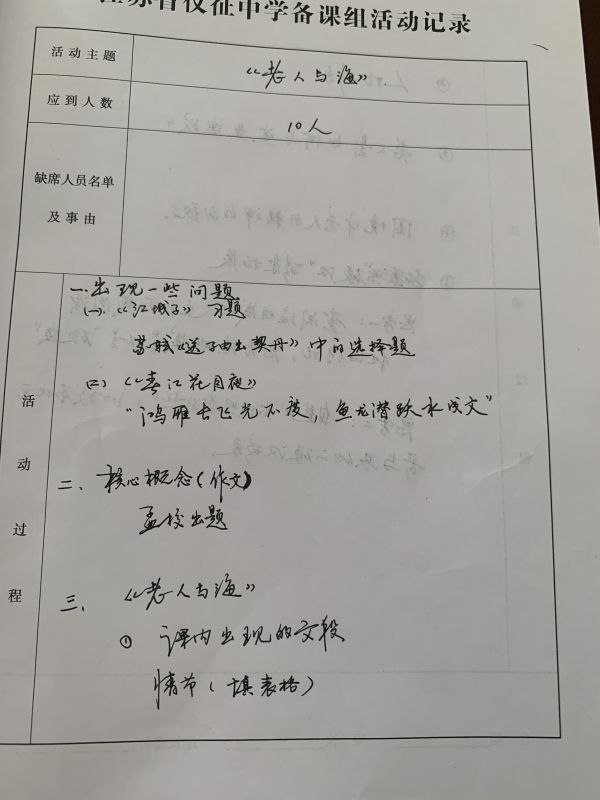 江苏省仪征中学备课组活动记录
活动主题
《老人与海》
应到人数
10人
缺席人员名单
及事由
活动过程
一.出现一些问题
(一).《江城子》习题
苏轼《送子由出契丹》中的选择题
(二)《春江花月夜》
“鸿雁长飞光不度，鱼龙潜跃水成文”
二、核心概念(作文)
孟校出题
三、《老人与海》
① 课内出现的文段
情节(填表格)